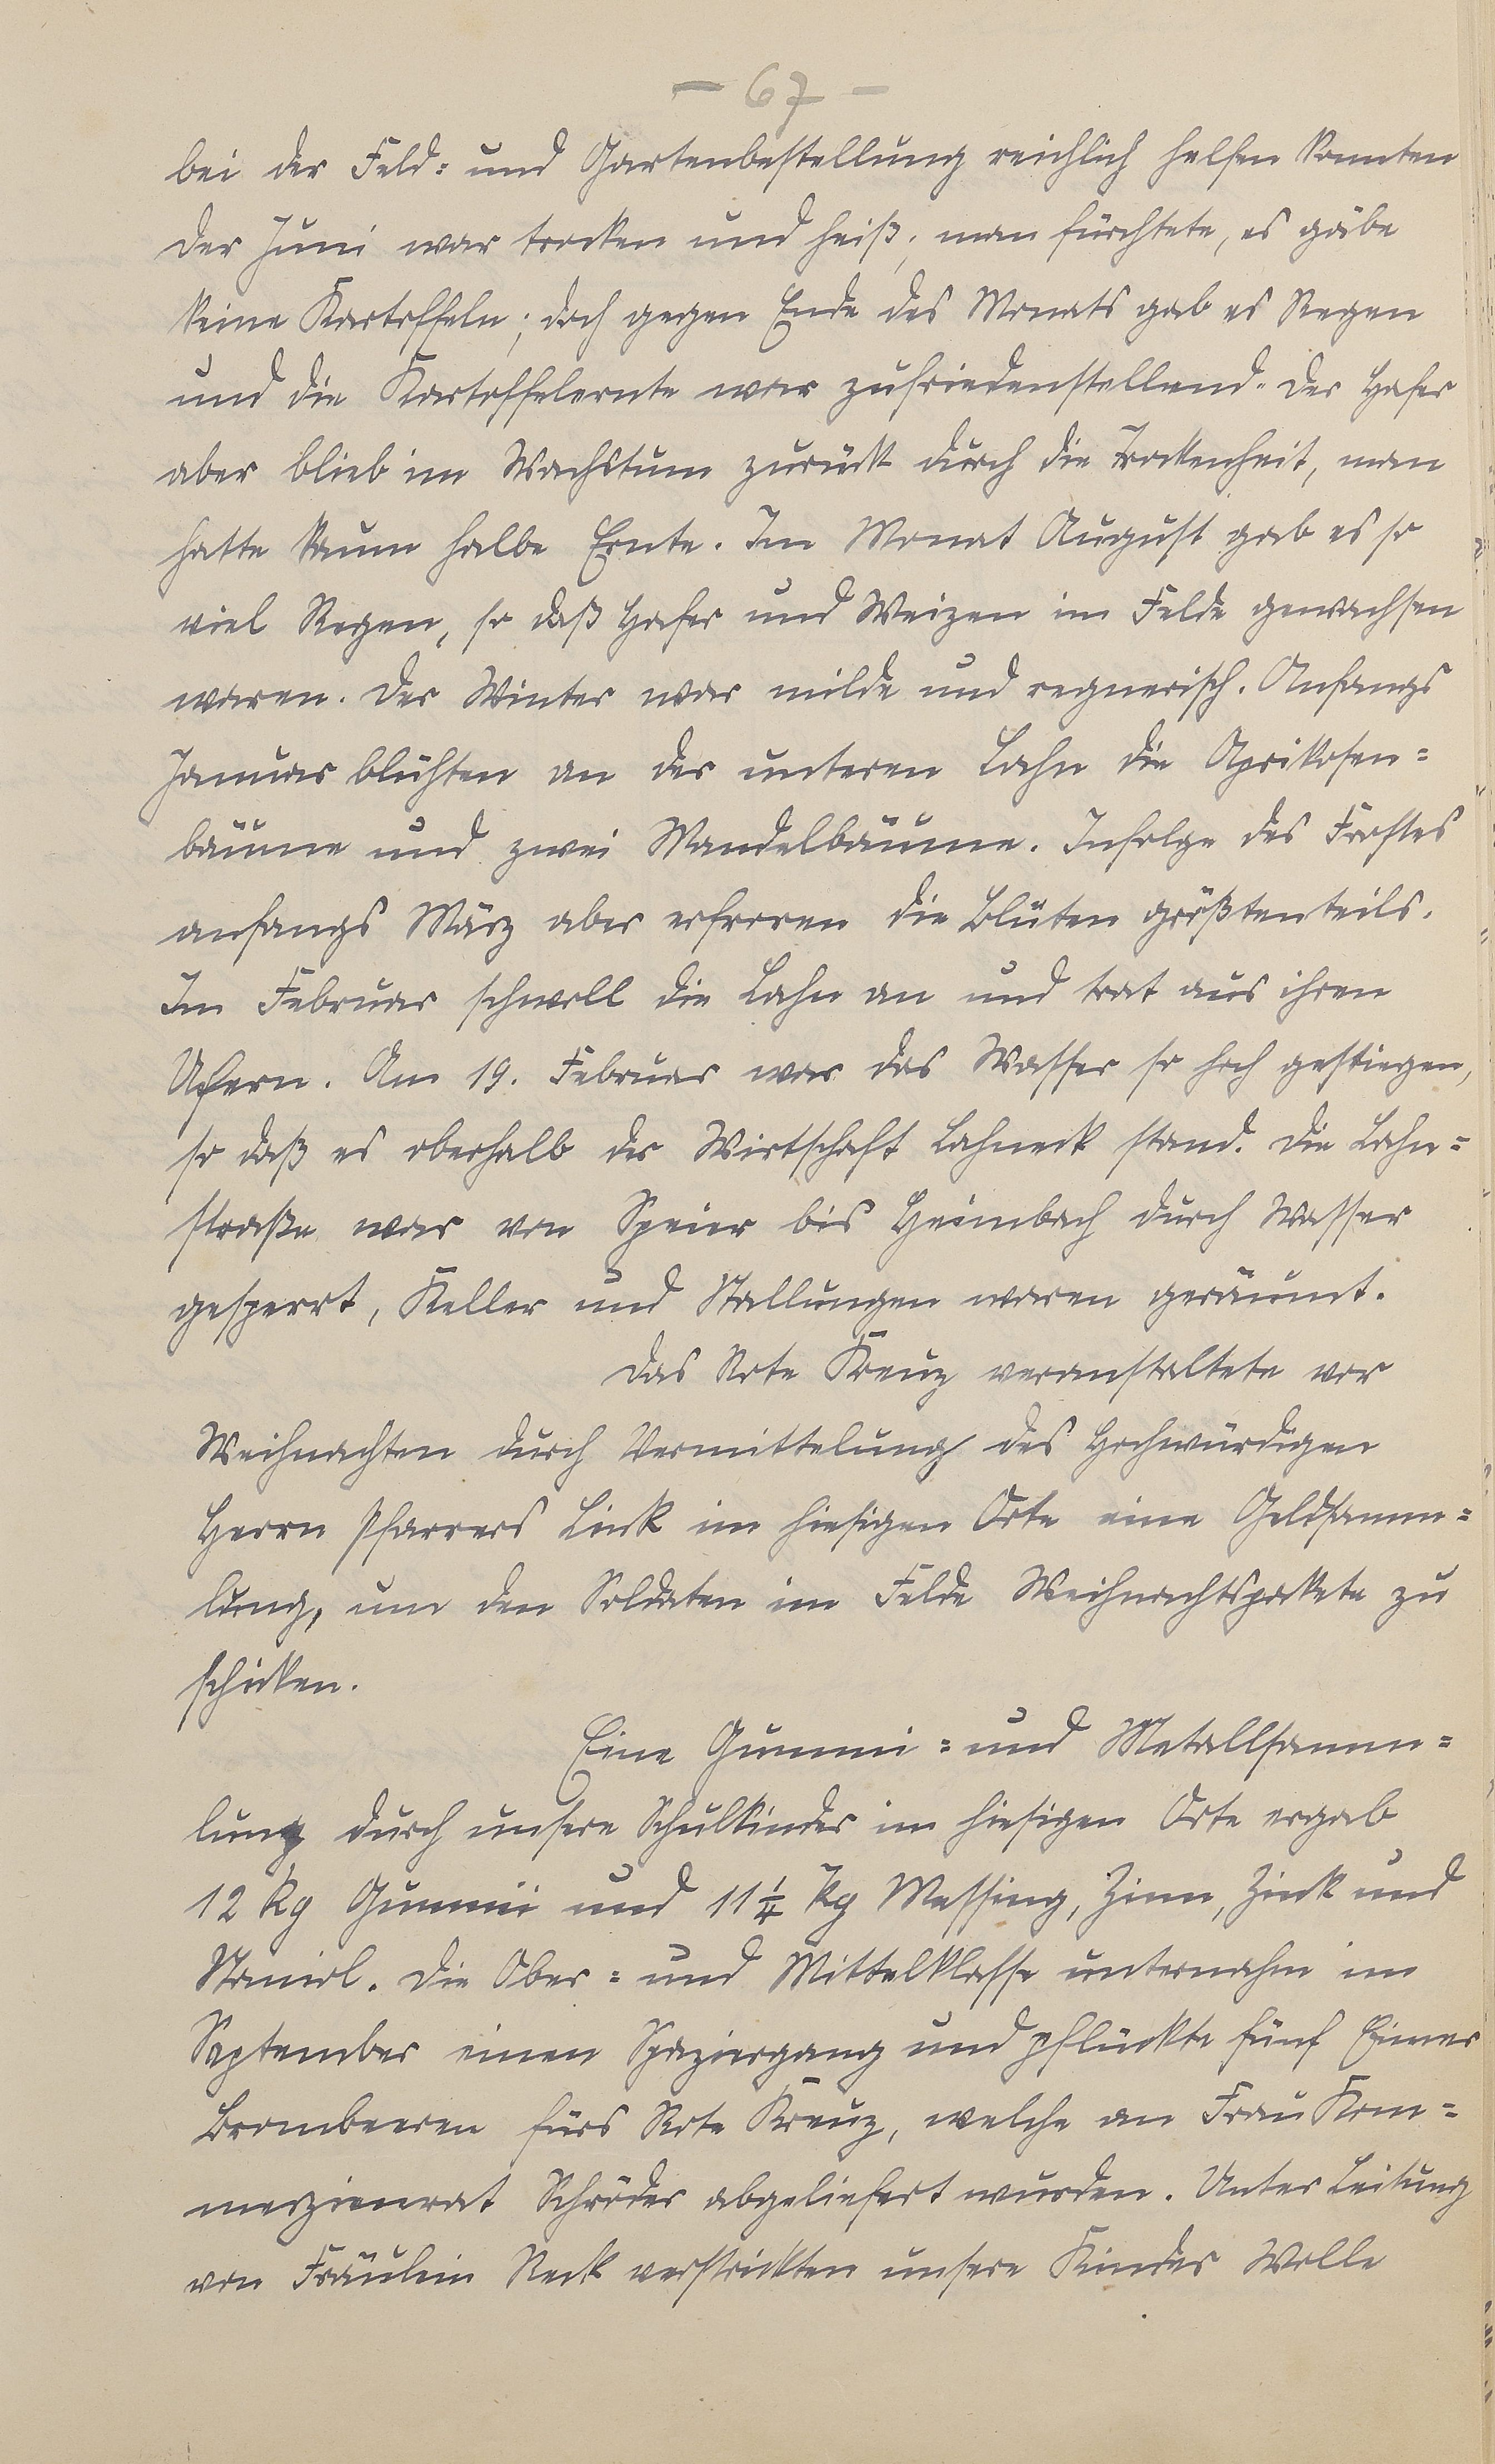 - 67 -
bei der Feld= und Gartenbestellung reichlich helfen konnten
Der Juni war trocken und heiß; man fürchtete, es gäbe
keine Kartoffeln; doch gegen Ende des Monats gab es Regen
und die Kartoffelernte war zufriedenstellend. Der Hafer
aber blieb im Wachstum zurück durch die Trockenheit, man
hatte kaum halbe Ernte. Im Monat August gab es so
viel Regen, so daß Hafer und Weizen im Felde gewachsen
waren. Der Winter war milde und regnerisch. Anfangs
Januar blühten an der unteren Lahn die Aprikosen=
bäume und zwei Mandelbäume. Infolge des Frostes
anfangs März aber erfroren die Blüten größtenteils.
Im Februar schwoll die Lahn an und trat aus ihren
Ufern. Am 19. Februar war das Wasser so hoch gestiegen,
so daß es oberhalb der Wirtschaft Lahneck stand. Die Lahn=
straße war von Speier bis Heimbach durch Wasser
gesperrt, Keller und Stallungen waren geräumt.
Das Rote Kreuz veranstaltete vor
Weihnachten durch Vermittelung des Hochwürdigen
Herrn Pfarrers Link im hiesigen Orte eine Geldsamm=
lung, um den Soldaten im Felde Weihnachtspakete zu
schicken.
Eine Gummi= und Metallsamm=
lung durch unsere Schulkinder im hiesigen Orte ergab
12 kg Gummi und 11 1/4 kg Messing, Zinn, Zink und
Staniol. Die Ober= und Mittelklasse unternahm im
September einen Spaziergang und pflückte fünf Eimer
Brombeeren fürs Rote Kreuz, welche an Frau Kom=
merzienrat Schröder abgeliefert wurden. Unter Leitung
von Fräulein Reck verstrickten unsere Kinder Wolle